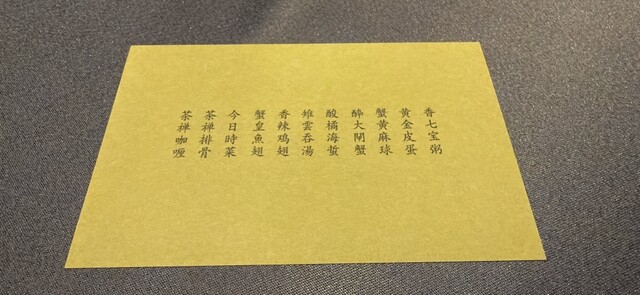 香七宝粥
黄金皮蛋
蟹黄麻球
醉大閘蟹
酸橘海蜇
雉雲吞湯
香辣鸡翅
蟹皇魚翅
今日時菜
茶禅排骨
茶禅咖喱